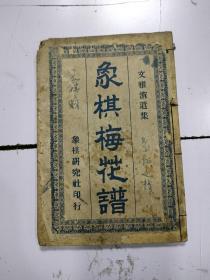 文雅消遣集
象棋梅花譜
象棋研究社印行